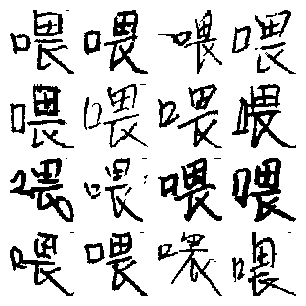 喂喂喂喂
喂喂喂喂
喂喂喂喂
喂喂喂喂